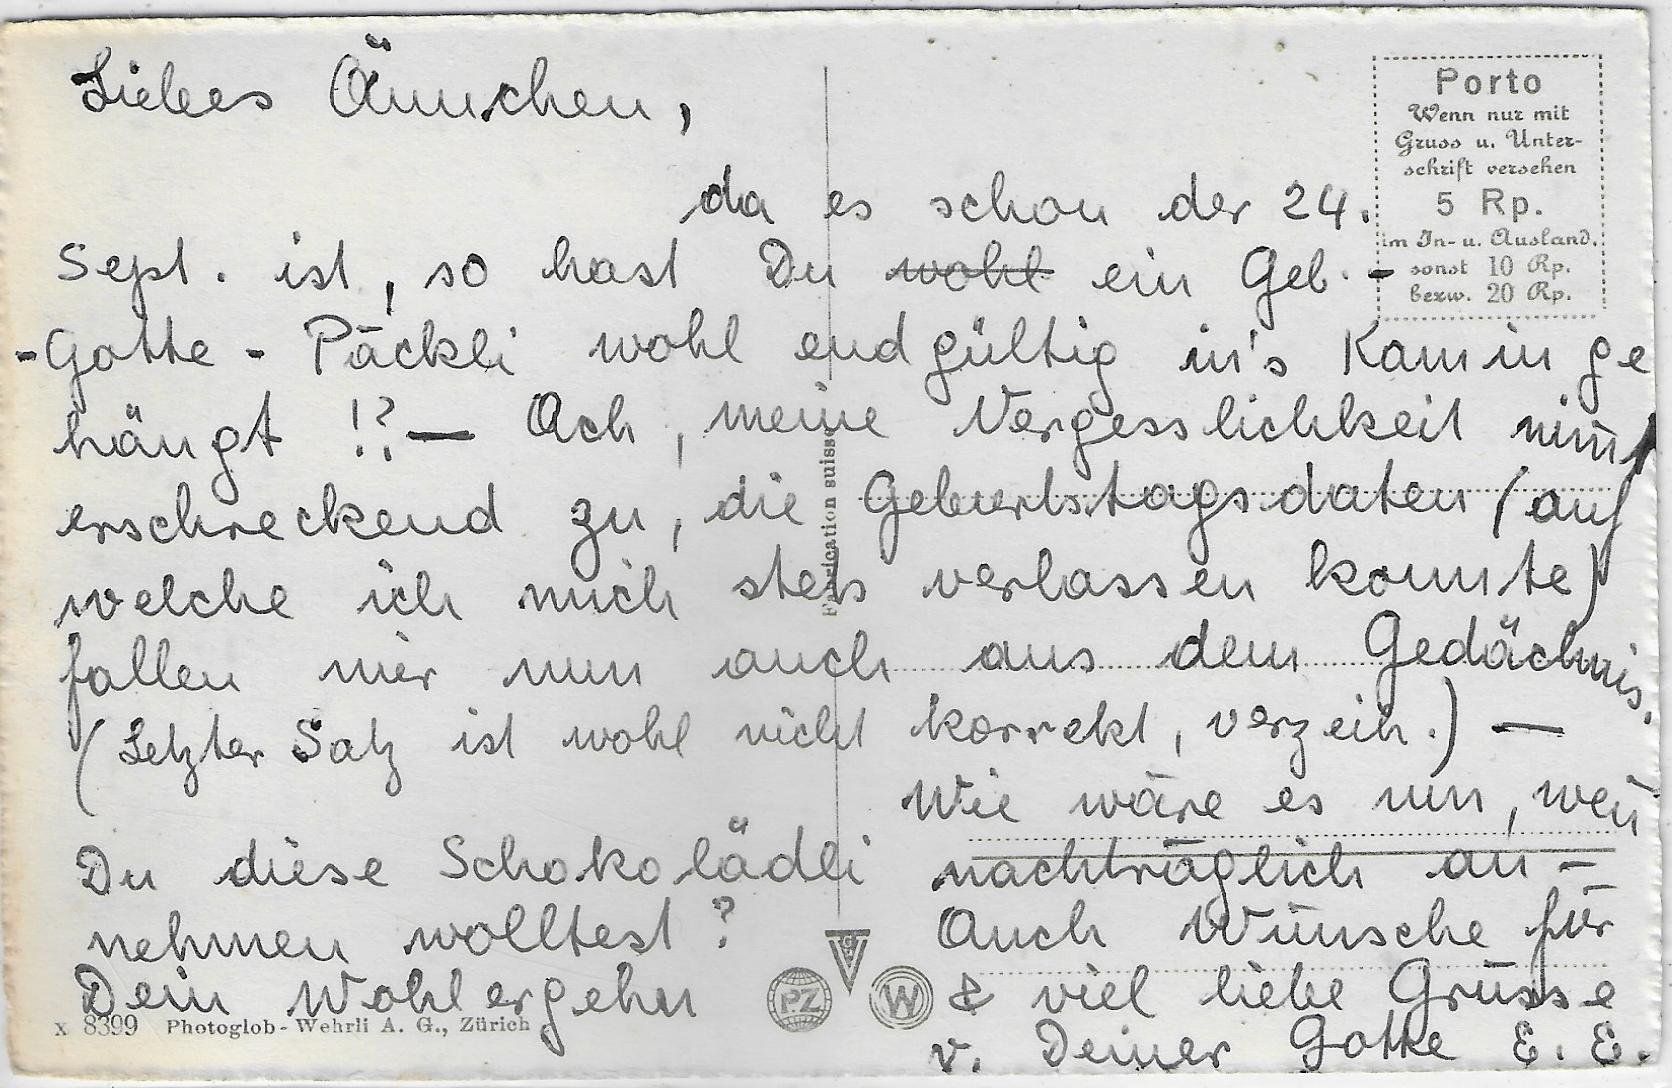 Liebes Ännchen,
da es schon der 24.
Sept. ist, so hast Du wohl ein Geb.-
-Gotte-Päckli wohl endgültig in's Kamin ge
hängt !? — Ach, meine Vergesslichkeit nim̄t
erschreckend zu, die Geburtstagsdaten (auf
welche ich mich stets verlassen konnte)
fallen mir nun auch aus dem Gedächnis.
(Letzter Satz ist wohl nicht korrekt, verzeih.) —
Wie wäre es nun, wen̄
Du diese Schokolädli nachträglich an-
nehmen wolltest? Auch Wünsche für
Dein Wohlergehn & viel liebe Grüsse
v. Deiner Gotte E. E.
Porto
Wenn nur mit
Gruss u. Unter-
schrift versehen
5 Rp.
im In- u. Ausland.
sonst 10 Rp.
bezw. 20 Rp.
Fabrication suisse
PZ
W
x 8399 Photoglob-Wehrli A. G., Zürich